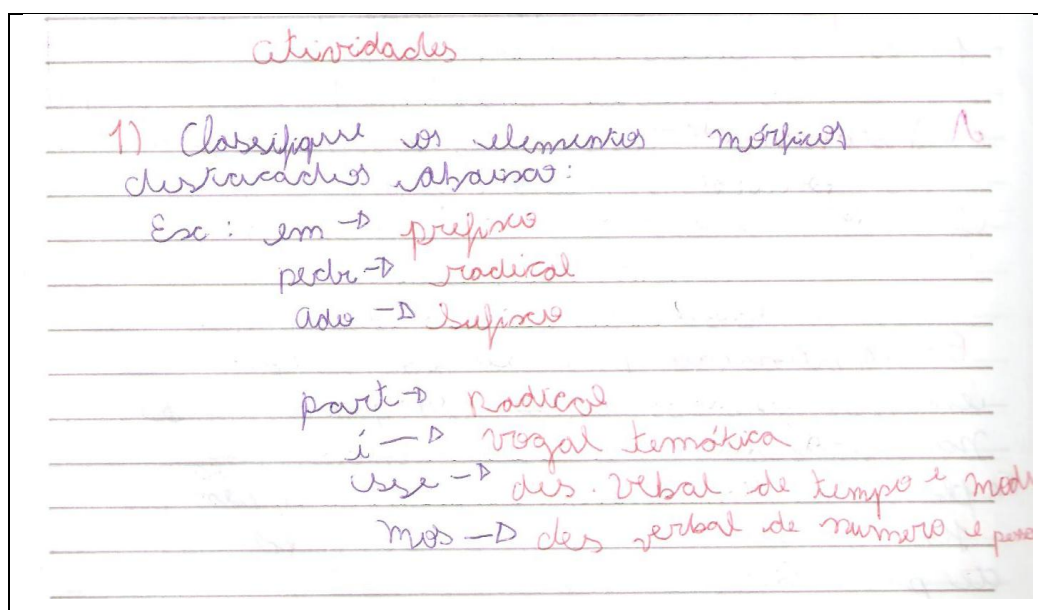 atividades
1) Classifique os elementos mórficos
destacados abaixo:
Ex: em → prefixo
pedr → radical
ado → sufixo
part → Radical
í → vogal temática
sse → des. verbal de tempo e mod
mos → des verbal de numero e pess